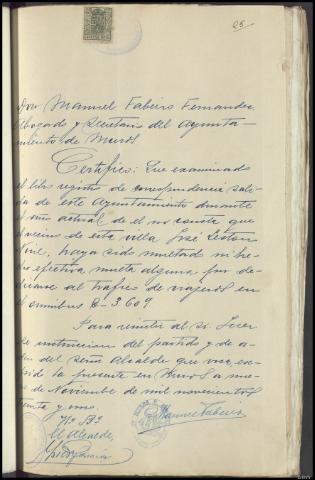 25
Don Manuel Fabeiro Fernandez,
Abogado y Secretario del Ayunta-
miento de Muros
Certifico: Que examinado
el libro registro de correspondencia sali-
da de este Ayuntamiento durante
el año actual, de el no consta que
el vecino de esta villa José Leston
haya sido multado ni he-
cho efectiva multa alguna por de-
dicarse al trafico de viajeros en
el omnibus C-3.609.
Para remitir al Sr. Juez
de instruccion del partido y de or-
den del señor Alcalde que visa, ex-
pido la presente en Muros a
de Noviembre de mil novecientos
treinta y uno.
Vº Bº
El Alcalde,
Manuel Fabeiro